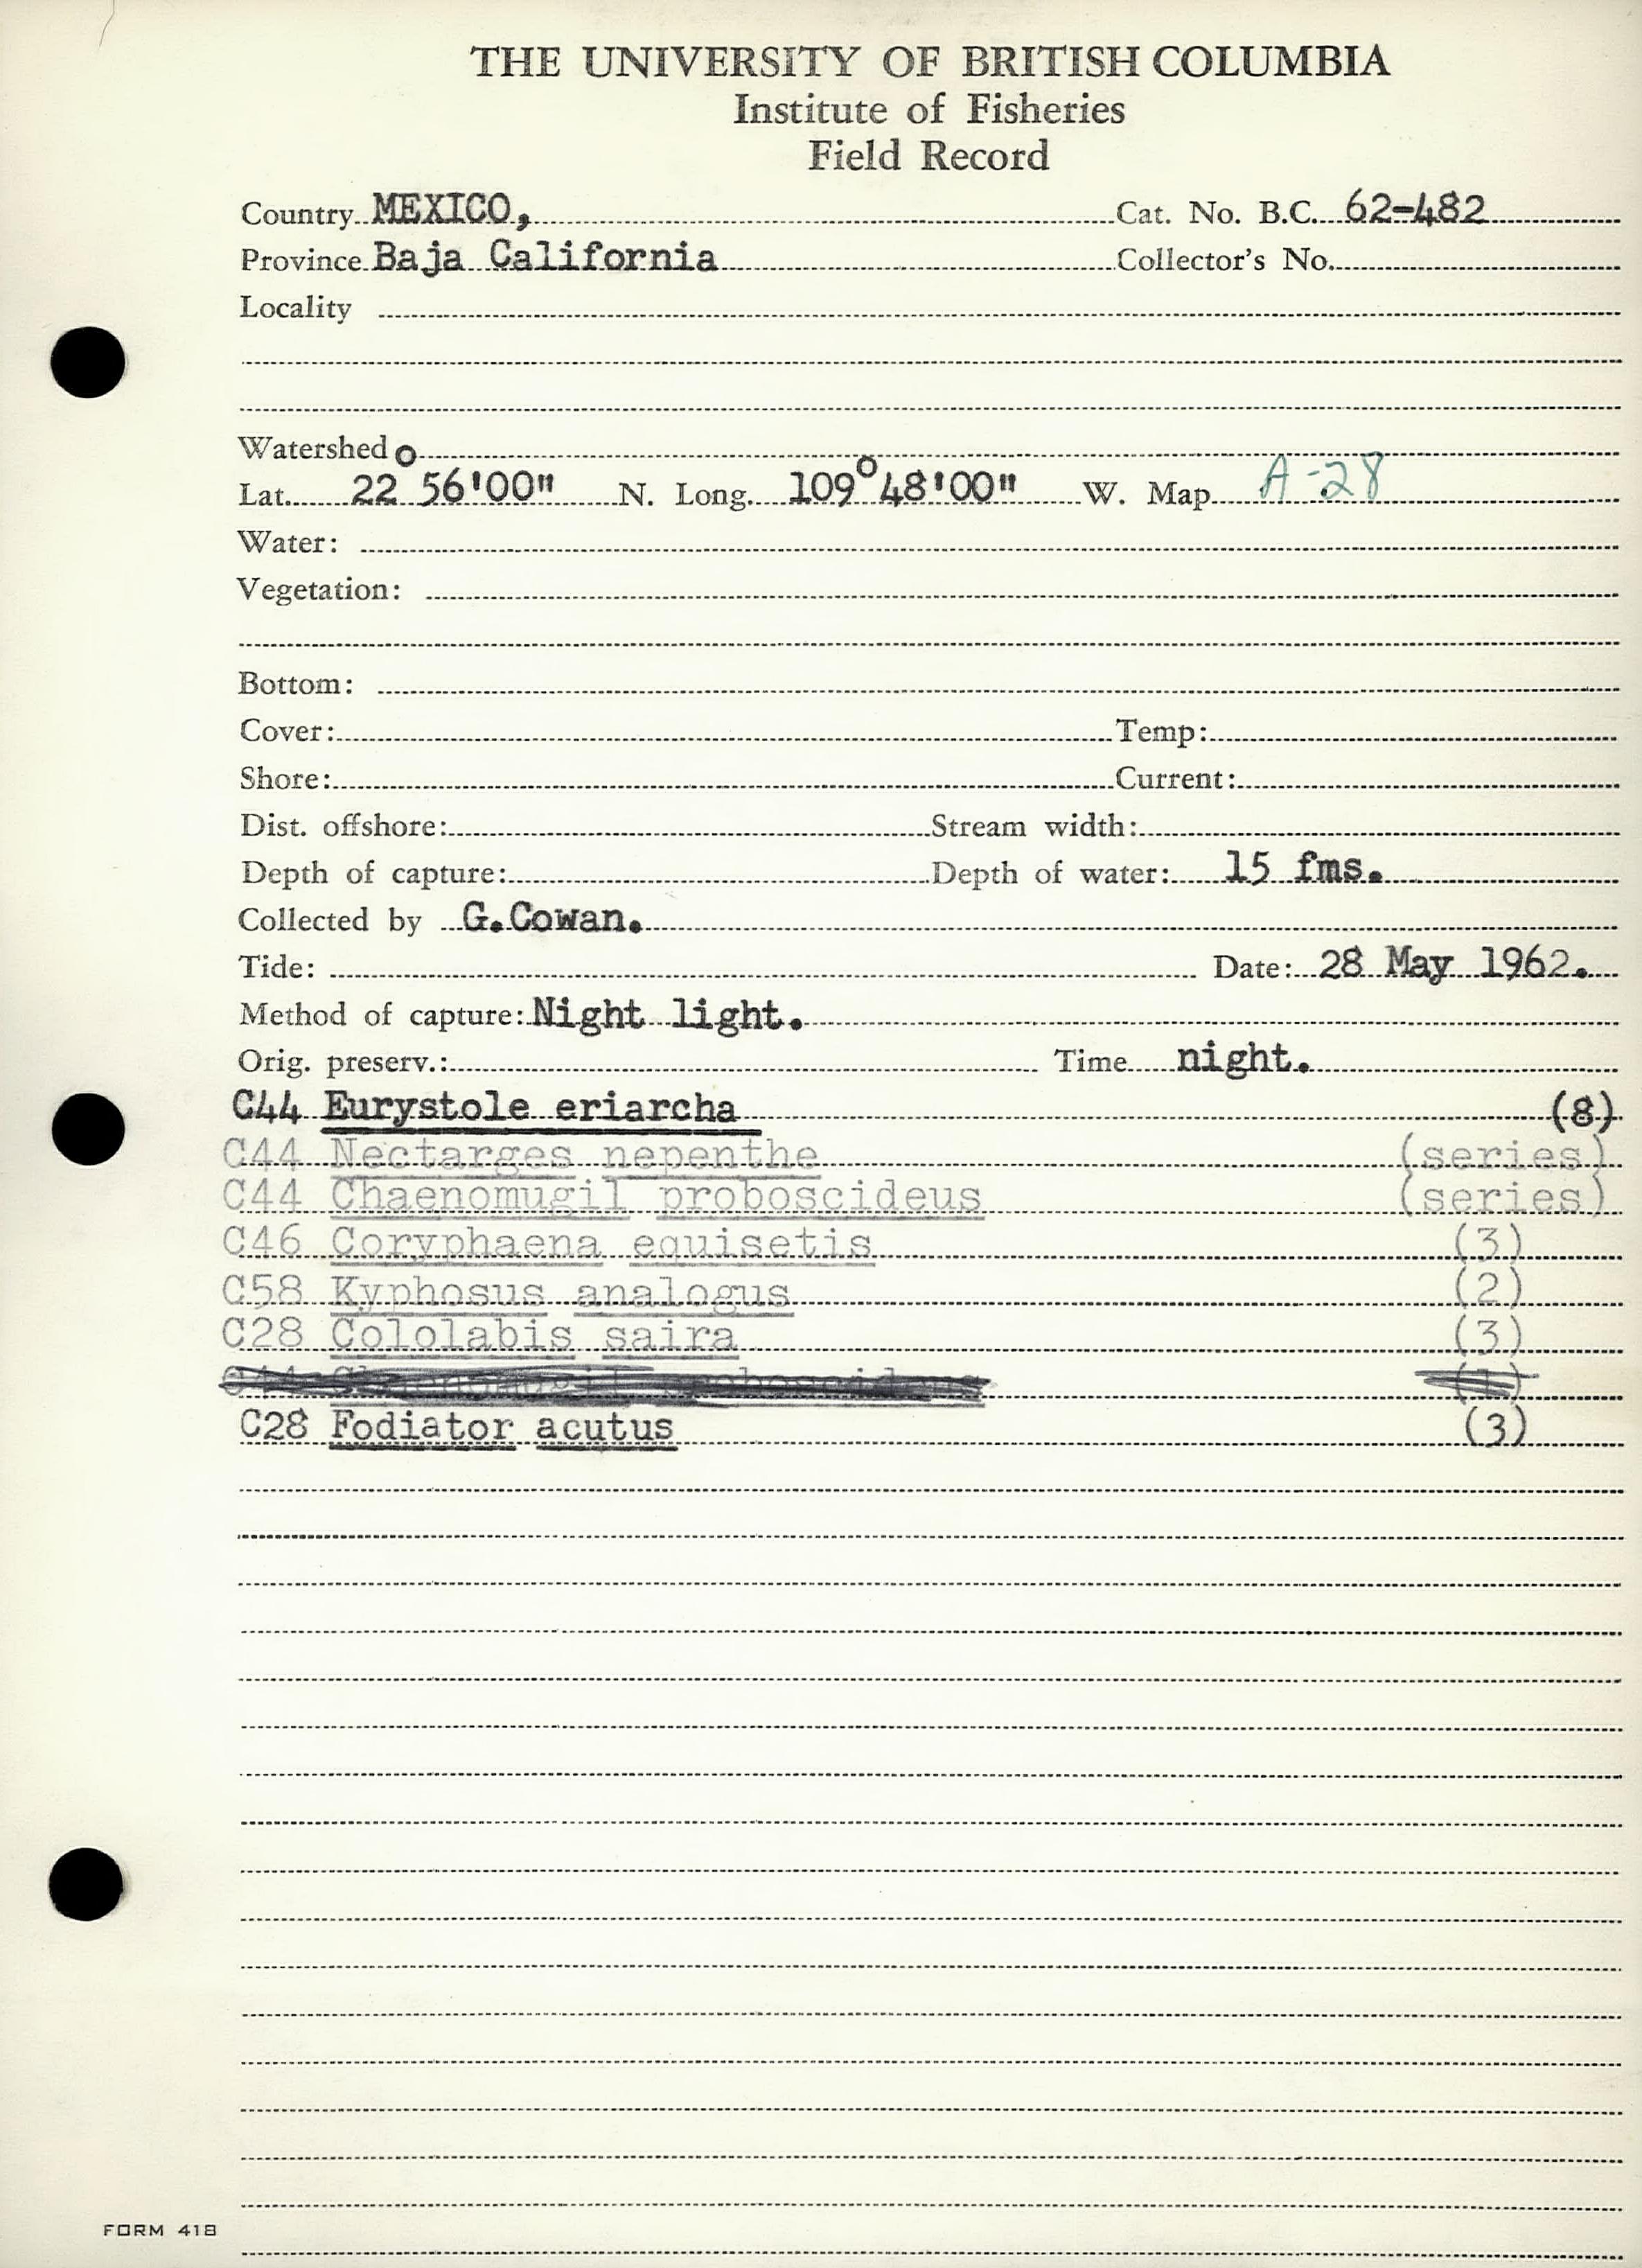 THE UNIVERSITY OF BRITISH COLUMBIA
Institute of Fisheries
Field Record
Country MEXICO, Cat. No. B.C. 62-482
Province Baja California Collector's No.
Locality
Watershed
Lat. 22°56'00" N. Long. 109°48'00" W. Map A-28
Water:
Vegetation:
Bottom:
Cover: Temp:
Shore: Current:
Dist. offshore: Stream width:
Depth of capture: Depth of water: 15 fms.
Collected by G.Cowan.
Tide: Date: 28 May 1962.
Method of capture: Night light.
Orig. preserv.: Time night.
C44 Eurystole eriarcha (8)
C44 Nectarges nepenthe (series)
C44 Chaenomugil proboscideus (series)
C46 Coryphaena equisetis (3)
C58 Kyphosus analogus (2)
C28 Cololabis saira (3)
C28 Fodiator acutus (3)
FORM 418